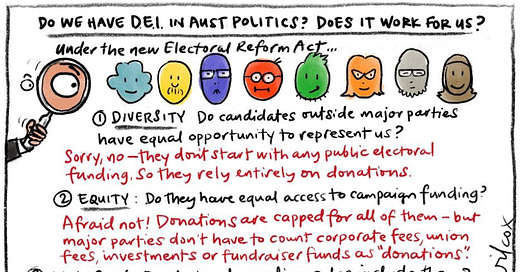 DO WE HAVE D.E.I. IN AUST POLITICS? DOES IT WORK FOR US?
Under the new Electoral Reform Act...
① DIVERSITY Do candidates outside major parties
have equal opportunity to represent us?
Sorry, no – they don't start with any public electoral
funding. So they rely entirely on donations.
② EQUITY: Do they have equal access to campaign funding?
Afraid not! Donations are capped for all of them – but
major parties don't have to count corporate fees, union
fees, investments or fundraiser funds as "donations".
wilcox